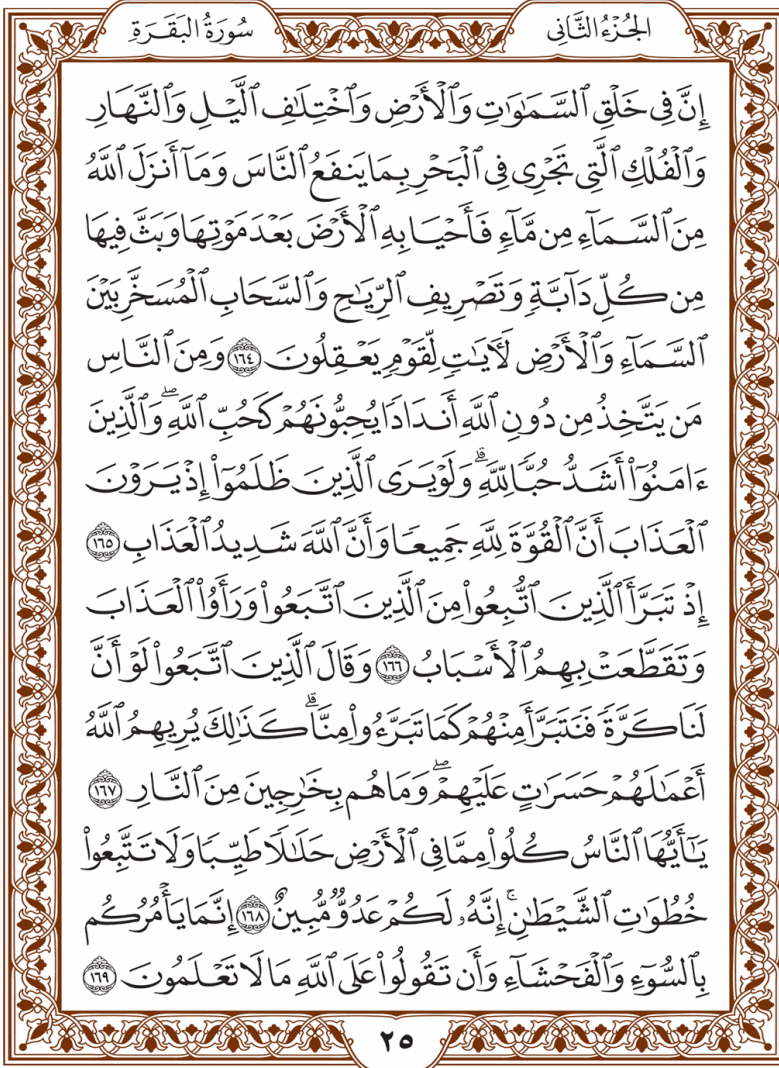 الجُزْءُ الثَّانِى
سُورَةُ البَقَرَةِ
إِنَّ فِى خَلْقِ ٱلسَّمَٰوَٰتِ وَٱلْأَرْضِ وَٱخْتِلَٰفِ ٱلَّيْلِ وَٱلنَّهَارِ
وَٱلْفُلْكِ ٱلَّتِى تَجْرِى فِى ٱلْبَحْرِ بِمَا يَنفَعُ ٱلنَّاسَ وَمَآ أَنزَلَ ٱللَّهُ
مِنَ ٱلسَّمَآءِ مِن مَّآءٍ فَأَحْيَا بِهِ ٱلْأَرْضَ بَعْدَ مَوْتِهَا وَبَثَّ فِيهَا
مِن كُلِّ دَآبَّةٍ وَتَصْرِيفِ ٱلرِّيَٰحِ وَٱلسَّحَابِ ٱلْمُسَخَّرِ بَيْنَ
ٱلسَّمَآءِ وَٱلْأَرْضِ لَءَايَٰتٍ لِّقَوْمٍ يَعْقِلُونَ ١٦٤ وَمِنَ ٱلنَّاسِ
مَن يَتَّخِذُ مِن دُونِ ٱللَّهِ أَندَادًا يُحِبُّونَهُمْ كَحُبِّ ٱللَّهِۖ وَٱلَّذِينَ
ءَامَنُوٓا۟ أَشَدُّ حُبًّا لِّلَّهِۗ وَلَوْ يَرَى ٱلَّذِينَ ظَلَمُوٓا۟ إِذْ يَرَوْنَ
ٱلْعَذَابَ أَنَّ ٱلْقُوَّةَ لِلَّهِ جَمِيعًا وَأَنَّ ٱللَّهَ شَدِيدُ ٱلْعَذَابِ ١٦٥
إِذْ تَبَرَّأَ ٱلَّذِينَ ٱتُّبِعُوا۟ مِنَ ٱلَّذِينَ ٱتَّبَعُوا۟ وَرَأَوُا۟ ٱلْعَذَابَ
وَتَقَطَّعَتْ بِهِمُ ٱلْأَسْبَابُ ١٦٦ وَقَالَ ٱلَّذِينَ ٱتَّبَعُوا۟ لَوْ أَنَّ
لَنَا كَرَّةً فَنَتَبَرَّأَ مِنْهُمْ كَمَا تَبَرَّءُوا۟ مِنَّاۗ كَذَٰلِكَ يُرِيهِمُ ٱللَّهُ
أَعْمَٰلَهُمْ حَسَرَٰتٍ عَلَيْهِمْۖ وَمَا هُم بِخَٰرِجِينَ مِنَ ٱلنَّارِ ١٦٧
يَٰٓأَيُّهَا ٱلنَّاسُ كُلُوا۟ مِمَّا فِى ٱلْأَرْضِ حَلَٰلًا طَيِّبًا وَلَا تَتَّبِعُوا۟
خُطُوَٰتِ ٱلشَّيْطَٰنِۚ إِنَّهُۥ لَكُمْ عَدُوٌّ مُّبِينٌ ١٦٨ إِنَّمَا يَأْمُرُكُم
بِٱلسُّوٓءِ وَٱلْفَحْشَآءِ وَأَن تَقُولُوا۟ عَلَى ٱللَّهِ مَا لَا تَعْلَمُونَ ١٦٩
٢٥